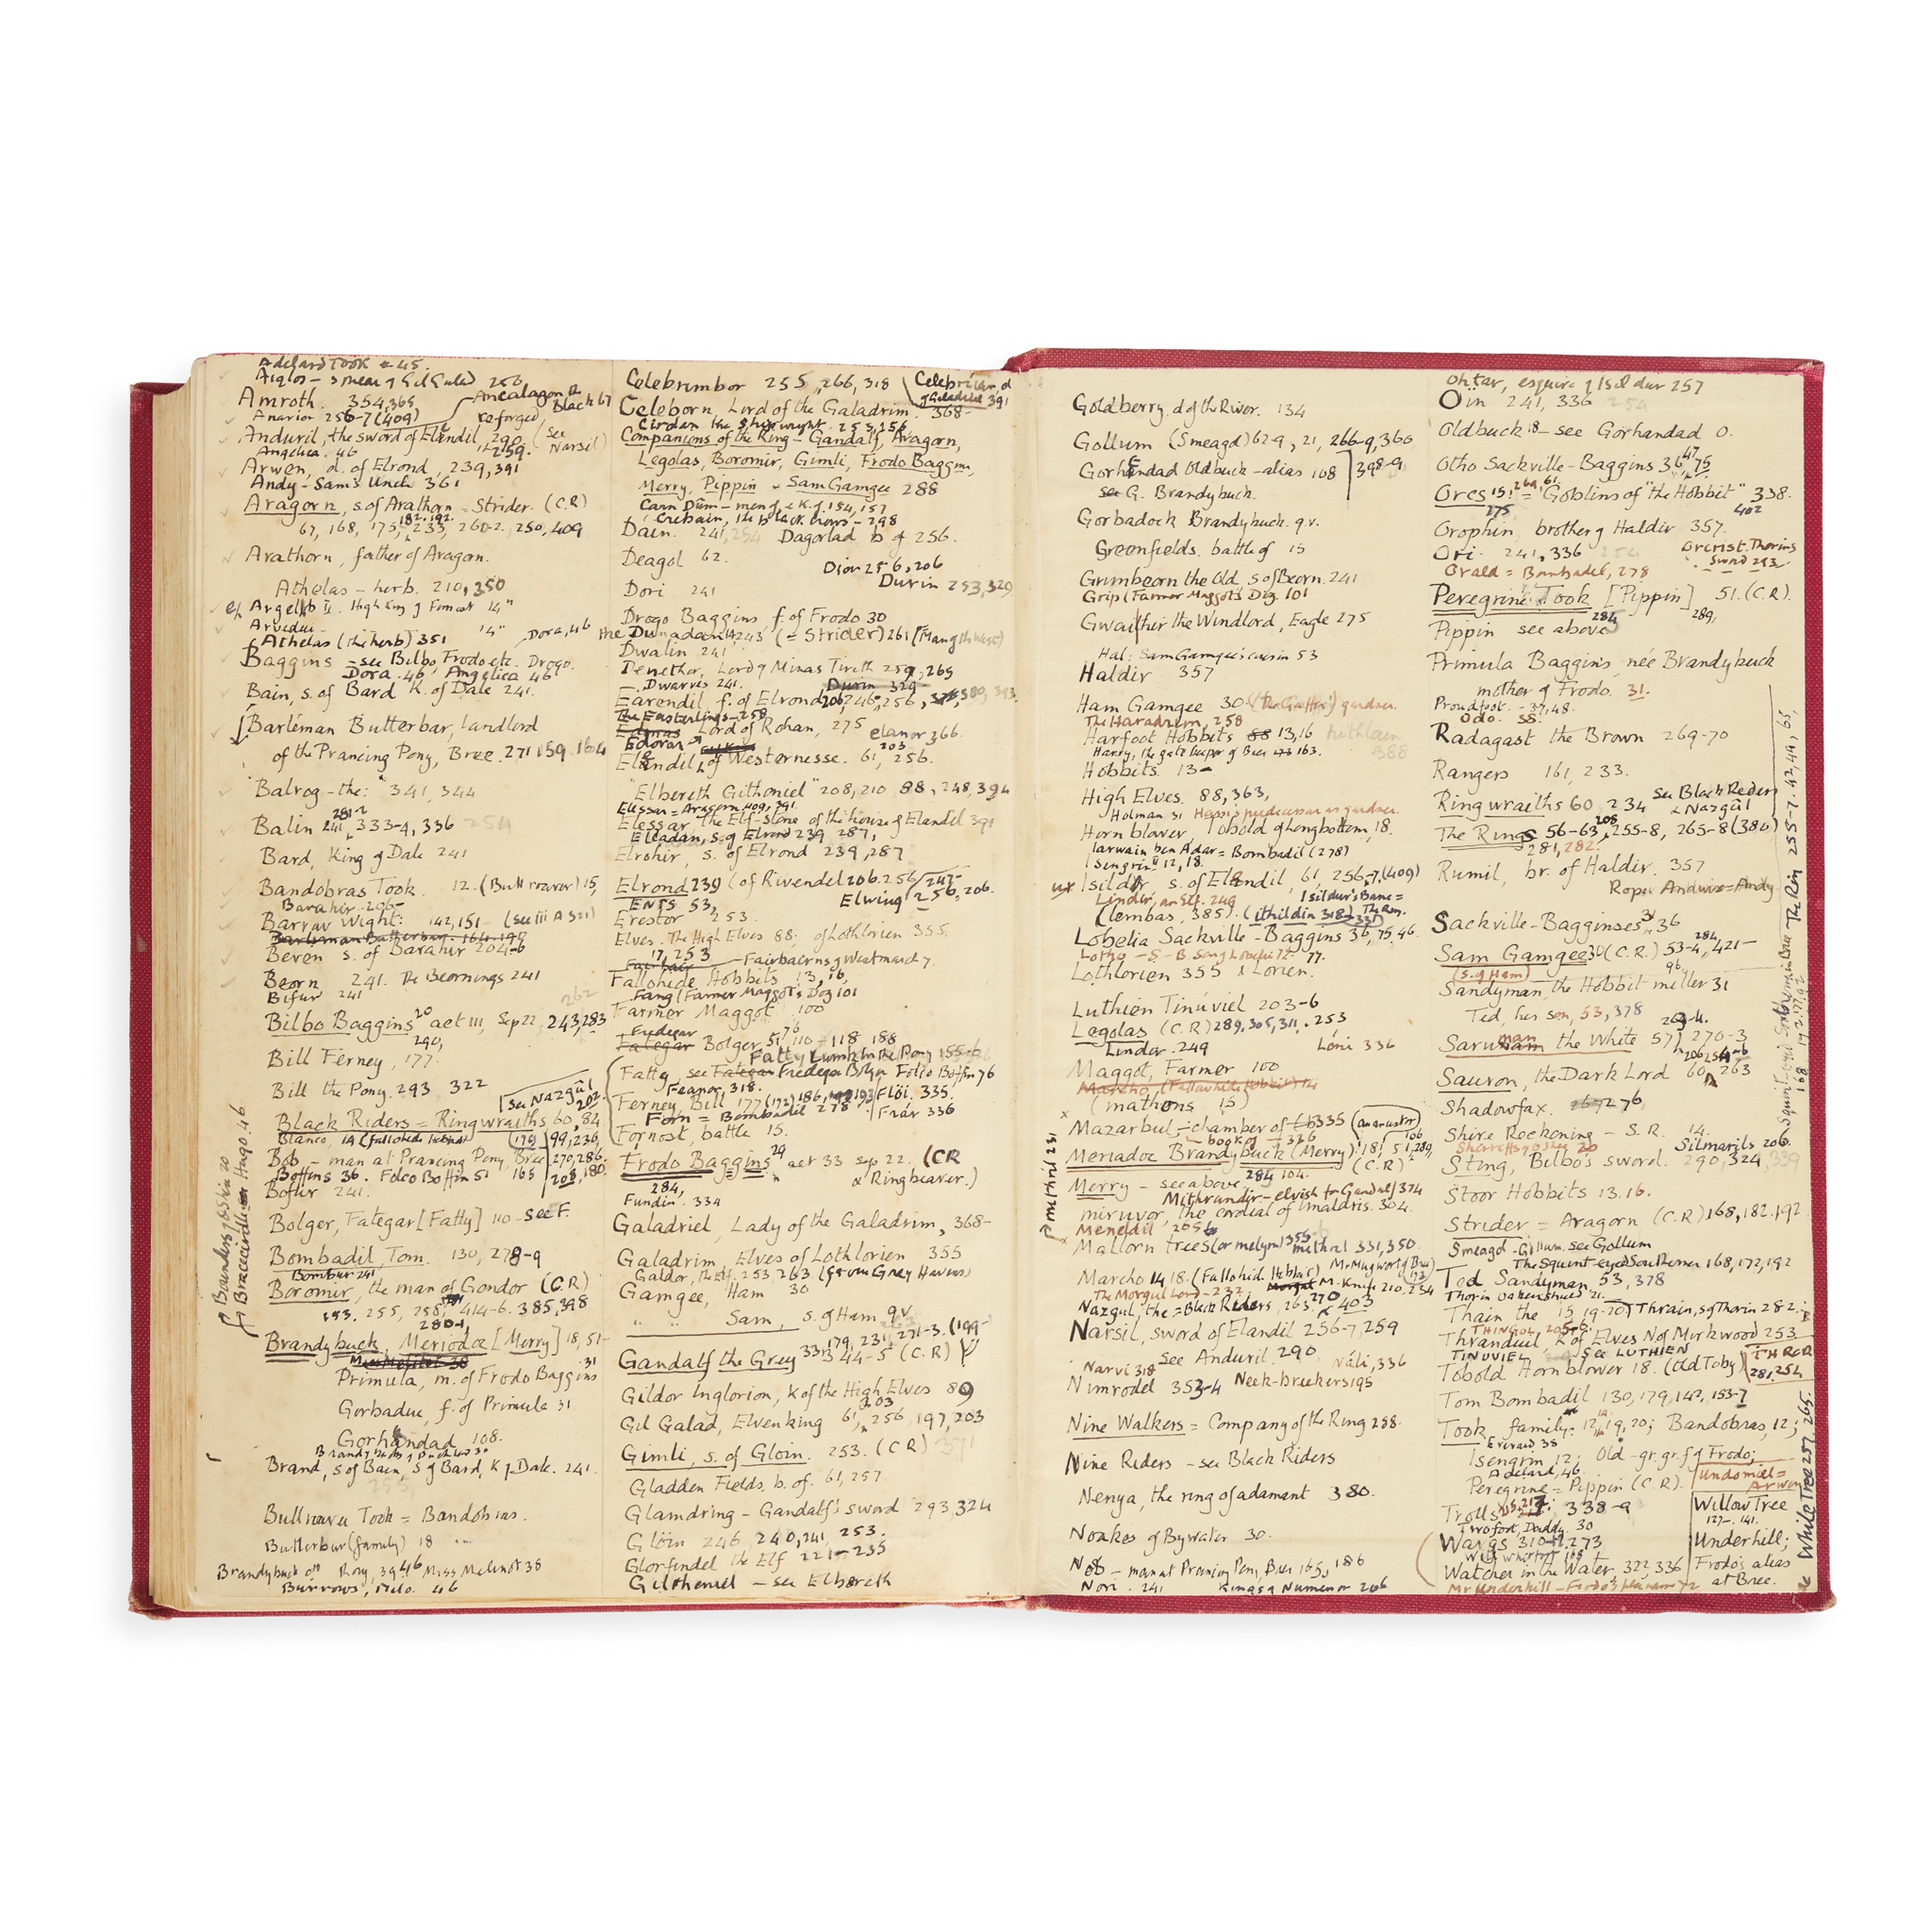 Adelard Took 45.
Aiglos – spear of Gil Galad 256
Amroth. 354, 365
Ancalagon the Black 67
Anarion 256-7 (409)
reforged,
Anduril, the sword of Elendil, 290 (see Narsil)
Angelica. 46
259.
Arwen, d. of Elrond, 239, 391
Andy – Sam's Uncle 361
Aragorn, s. of Arathorn = Strider. (C.R)
182. 192.
67, 168, 175, 233, 260-2, 250, 409
Arathorn, father of Aragorn.
Athelas – herb. 210, 350
Argeleb II. High King of Fornost 14"
Arvedui 14"
Athelas (the herb) 351
Dora, 46
Baggins – see Bilbo, Frodo etc. Drogo.
Dora. 46, Angelica 46
Bain, s. of Bard K. of Dale 241.
Barliman Butterbur, landlord
of the Prancing Pony, Bree. 271 159. 164
Balrog – the: 341, 344
281-2
Balin 241, 333-4, 336 254
Bard, King of Dale 241
Bandobras Took. 12. (Bullroarer) 15,
Barahir. 206-
Barrow Wight: 142, 151 – (see iii A 321)
Barliman Butterbur. 164. 147
Beren s. of Barahir 204-6
Beorn 241. The Beornings 241
Bifur 241
262
Bilbo Baggins 20 aet 111, Sep 22, 243, 283
290,
Bill Ferney, 177.
Bill the Pony. 293, 322
(see Nazgûl 202.
Black Riders = Ringwraiths 60, 84
Blanco, 14 (fallohide hobbit) 99, 236,
Bob – man at Prancing Pony, Bree 270, 286.
Boffins 36. Folco Boffin 51 165 208, 180.
Bofur 241.
Bolger, Fategar [Fatty] 110 – see F.
Bombadil, Tom. 130, 278-9
Bombur 241
Boromir, the man of Gondor (C.R)
253, 255, 258, 414-6. 385, 398
280-1,
Brandybuck, Meriodoc [Merry] 18, 51-
Primula, m. of Frodo Baggins 31
Gorbaduc, f. of Primula 31
Gorhendad 108.
Brand, s. of Bain, s. of Bard, K. of Dale. 241.
255,
Bullroarer Took = Bandobras.
Butterbur (family) 18
Brandybuck Old Rory, 39 46 Miss Melilot 38
Burrows, Milo. 46
Bracegirdle Hugo. 46
Celebrimbor 255, 266, 318
Celebrían, d of Galadriel 391
Celeborn, Lord of the Galadrim. 368-
Cirdan the Shipwright. 253, 256
Companions of the Ring – Gandalf, Aragorn,
Legolas, Boromir, Gimli, Frodo Baggins,
Merry, Pippin & Sam Gamgee 288
Carn Dûm – men of & K. of 154, 157
Crebain, the black crows – 298
Dain. 241, 254 Dagorlad b of 256.
Deagol 62.
Dior 256, 206
Durin 253, 329
Dori 241
Drogo Baggins, f. of Frodo 30
the Dunadan 243 (= Strider) 261 (Man of the West)
Dwalin 241
Denethor, Lord of Minas Tirith 259, 265
Dwarves 241. Durin 329
Earendil f. of Elrond 206, 246, 256, 380, 393.
The Easterlings – 258
Lord of Rohan, 275 elanor 366.
Edoras
203
Elendil, of Westernesse. 61, 256.
"Elbereth Gilthoniel" 208, 210, 88, 248, 394
Elessar = Aragorn 409, 391.
Elessar The Elf-stone of the house of Elendil 391
Elladan, s. of Elrond 239, 287,
Elrohir, s. of Elrond 239, 287
Elrond 239 (of Rivendel 206. 256 247-
Ents 53,
Elwing 256, 206.
Erestor 253.
Elves. The High Elves 88; of Lothlorien 355.
17, 253
Fairbairns of Westmarch 7.
Fallohide Hobbits 13, 16,
Fang (Farmer Maggot's Dog 101
Farmer Maggot 100
Fredegar
Fategar Bolger 51, 76 110 118, 188
Fatty Lumpkin the Pony 155-6
Fatty, see Fategar Fredegar Bolger Folco Boffin 76
Feanor, 318.
Ferney, Bill 177 (172) 186, 193 Flói, 335.
Forn = Bombadil 278 Frár 336
Fornost, battle 15.
Frodo Baggins 29 aet 33 sep 22. (CR & Ringbearer.)
284,
Fundin. 334
Galadriel, Lady of the Galadrim, 368-
Galadrim, Elves of Lothlorien 355
Galdor, the Elf. 253, 263 (from Grey Havens)
Gamgee, Ham 30
" " Sam, s. of Ham q.v.
179, 231, 271-3. (199-
Gandalf the Grey 33 344-5 (C.R)
Gildor Inglorion, K of the High Elves 89
203
Gil Galad, Elven king 61, 256, 197, 203
Gimli, s. of Gloin. 253. (C.R) 371
Gladden Fields, b. of. 61, 257
Glamdring – Gandalf's sword 293, 324
Glóin 246, 240, 241, 253.
Glorfindel the Elf 221-235
Gilthoniel – see Elbereth
Goldberry. d of the River. 134
Gollum (Smeagol) 62-9, 21, 266-9, 360
398-9
Gorhendad Oldbuck – alias 108
see G. Brandybuck.
Gorbadock Brandybuck. qv.
Greenfields. battle of 15
Grimbeorn the Old, s of Beorn. 241
Grip (Farmer Maggot's Dog. 101
Gwaihir the Windlord, Eagle 275
Hal: Sam Gamgee's cousin 53
Haldir 357
Ham Gamgee 30 (the Gaffer) gardener
The Haradrim, 258
Harfoot Hobbits 88 13, 16 hithlain 388
Harry, the gate keeper of Bree 163.
Hobbits. 13-
High Elves. 88, 363,
Holman 31 Ham's predecessor as gardener.
Hornblower, Tobold of Longbottom, 18.
Iarwain ben Adar = Bombadil (278)
Isengrim II 12, 18.
Isildur, s. of Elendil, 61, 256-7, (409)
Lindir, an Elf. 249 Isildur's Bane = The Ring.
(lembas, 385). (ithildin 318)
Lobelia Sackville-Baggins 36, 75, 46.
Lotho – S-B son of Lobelia 77.
Lothlorien 355 & Lorien.
Luthien Tinúviel 203-6
Legolas (C.R) 289, 305, 311, 253
Lindir. 249 Lóni 336
Maggot, Farmer 100
Marcho, (Fallohide hobbit) 14
(mathoms 15)
Mazarbul, – chamber of 335
book of 336
Meriadoc Brandybuck (Merry) 18, 51, 289,
(C.R)
Merry – see above 284 104.
Mithrandir – elvish for Gandalf 374
miruvor, the cordial of Imladris. 304.
Meneldil 256
Mallorn trees (or melyrn) 355 mithril 331, 350.
Marcho 14 18. (Fallohide Hobbit) Mr Mugwort of Bree (172)
The Morgul Lord – 232,
Nazgul, the = Black Riders, 263. & 403
Narsil, sword of Elendil 256-7, 259
see Anduril. 290
Narvi 318 Náli, 336
Nimrodel 353-4 Neek-breekers 195
Nine Walkers = Company of the Ring 288.
Nine Riders – see Black Riders
Nenya, the ring of adamant 380.
Noakes of Bywater 30.
Nob – man at Prancing Pony, Bree 165, 186
Nori. 241 Kings of Numenor 206
mithril 231
Ohtar, esquire of Isildur 257
Óin 241, 336 254
Oldbuck 18 – see Gorhandad O.
Otho Sackville-Baggins 36, 47, 75
Orcs 15! = "Goblins of "the Hobbit" 338.
275 402
Orophin, brother of Haldir 357.
Ori. 241, 336 254
Orcrist. Thorin's Sword 293.
Orald = Bombadil, 278
Peregrine Took [Pippin] 51. (C.R).
289,
Pippin see above 284
Primula Baggins, née Brandybuck
mother of Frodo. 31.
Proudfoot. – 37, 48.
Odo. 38.
Radagast the Brown 269-70
Rangers 161, 233.
Ringwraiths 60, 234 see Black Riders & Nazgûl
The Rings 56-63, 208 255-8, 265-8 (380)
281, 282.
Rumil, br. of Haldir. 357
Roper Andwise = Andy
Sackville-Bagginses, 31 36
Sam Gamgee 30 (C.R.) 53-4, 284, 421-
(s. of Ham)
96.
Sandyman, the Hobbit miller 31
Ted, his son, 53, 378
Saruman the White 57, 270-3
Sauron, the Dark Lord 60, 263
Shadowfax. 276,
Shire Reckoning – S.R. 14.
Silmarils 206.
Sting, Bilbo's sword. 290, 324, 339
Stoor Hobbits 13. 16.
Strider = Aragorn (C.R) 168, 182. 192
Smeagol – Gollum. see Gollum
The squint-eyed Southerner 168, 172, 192
Ted Sandyman 53, 378
Thorin Oakenshield 21.
Thain the 15, 19-20, Thrain, s of Thorin 282.
THINGOL 205-6.
Thranduil, K of Elves N of Mirkwood 253
TINUVIEL see LUTHIEN THROR 281, 254
Tobold Hornblower 18. (Old Toby)
Tom Bombadil 130, 179, 142, 153-7
Took family: 12, 19, 20; Bandobras, 12;
Everard, 38
Isengrim 12; Old – gr. gr. f of Frodo;
Adelard, 46
Peregrine = Pippin (C.R).
Undomiel = Arwen
Trolls 338-9
Willow Tree
127-. 141.
Twofoot, Daddy. 30
Wargs 310-11, 273
Underhill; Frodo's alias at Bree.
Watcher in the Water 322, 336
Mr Underhill – Frodo's
White Tree 257. 265.